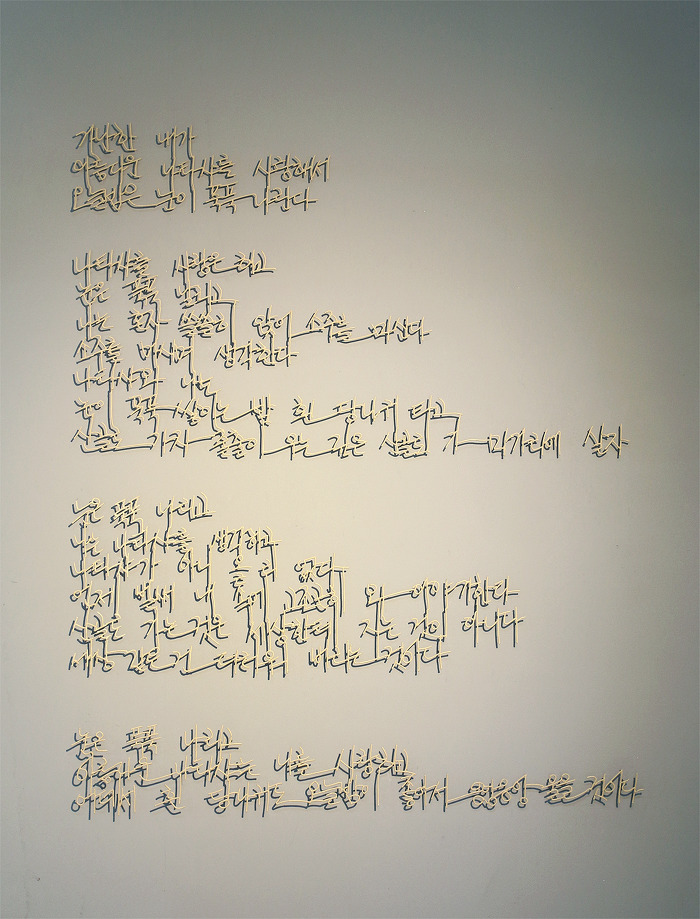 가난한 내가
아름다운 나타샤를 사랑해서
오늘밤은 눈이 푹푹 나린다
나타샤를 사랑은 하고
눈은 푹푹 날리고
나는 혼자 쓸쓸히 앉어 소주를 마신다
소주를 마시며 생각한다
나타샤와 나는
눈이 푹푹 쌓이는 밤 흰 당나귀 타고
산골로 가자 출출이 우는 깊은 산골로 가 마가리에 살자
눈은 푹푹 나리고
나는 나타샤를 생각하고
나타샤가 아니 올 리 없다
언제 벌써 내 속에 고조곤히 와 이야기한다
산골로 가는 것은 세상한테 지는 것이 아니다
세상 같은 건 더러워 버리는 것이다
눈은 푹푹 나리고
아름다운 나타샤는 나를 사랑하고
어데서 흰 당나귀도 오늘밤이 좋아서 응앙응앙 울을 것이다